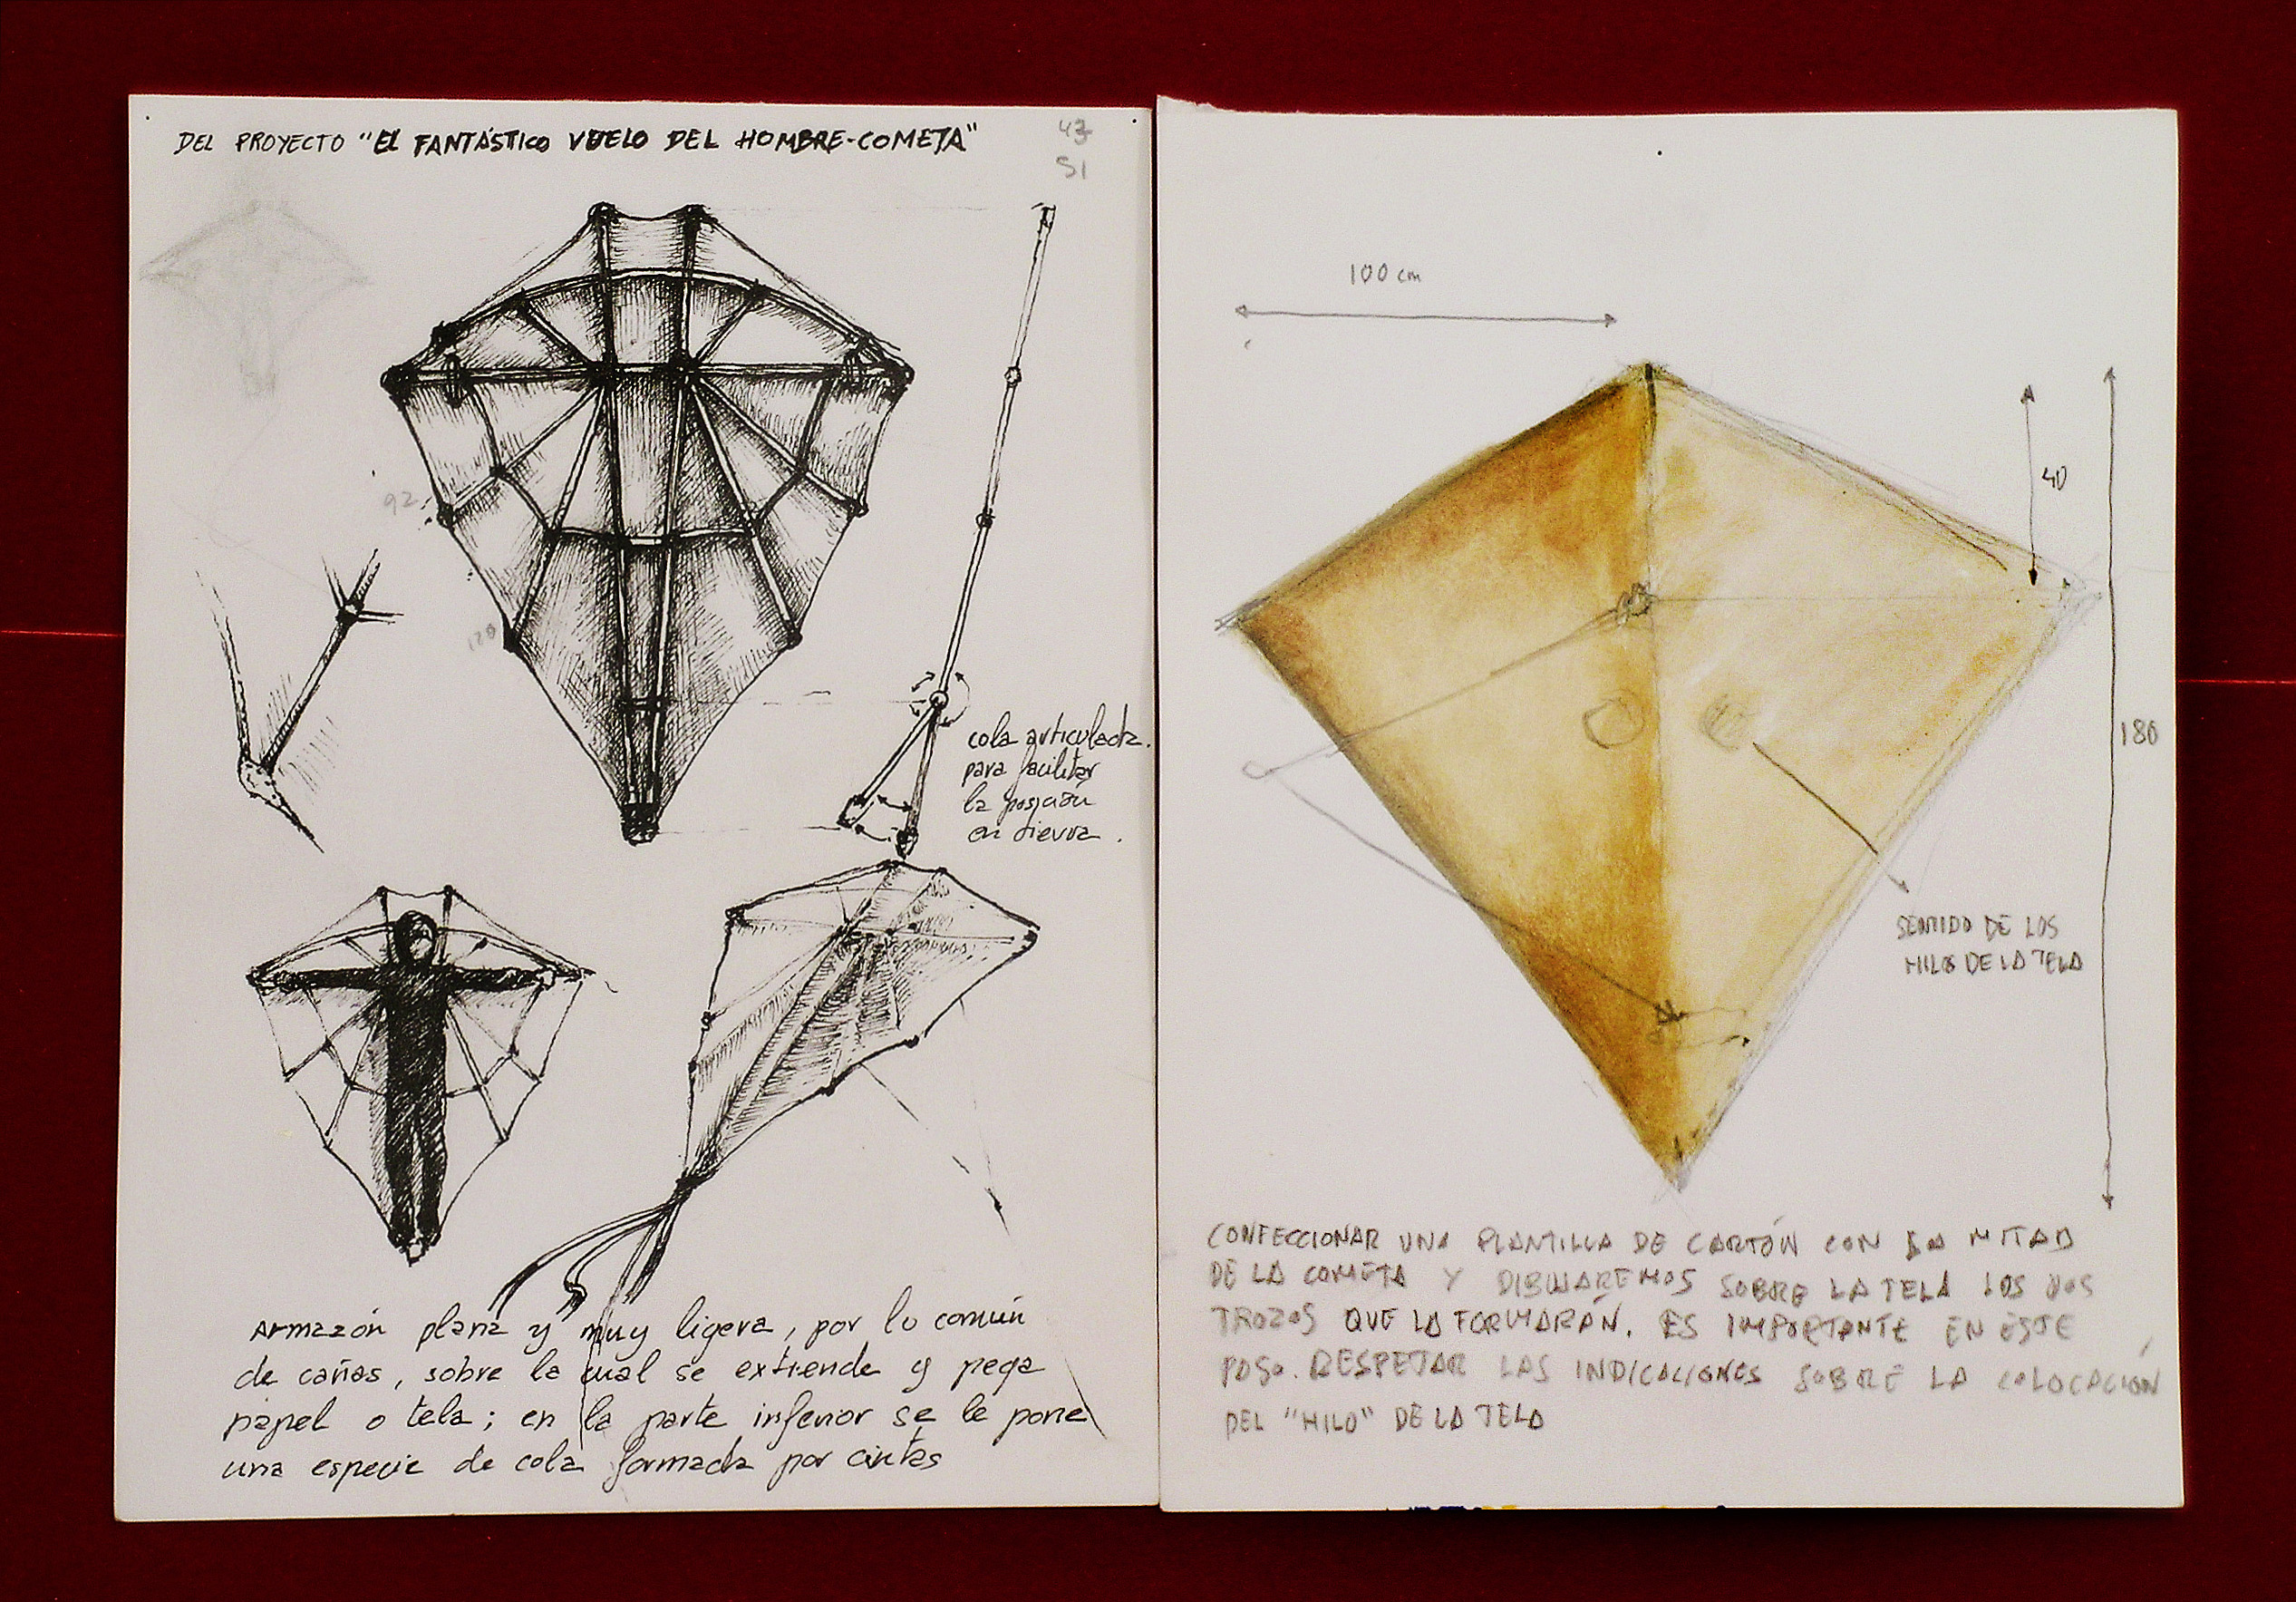 DEL PROYECTO "EL FANTÁSTICO VUELO DEL HOMBRE-COMETA"
43
51
92
120
cola articulada
para facilitar
la posición
en tierra.
Armazón plana y muy ligera, por lo común
de cañas, sobre la cual se extiende y pega
papel o tela; en la parte inferior se le pone
una especie de cola formada por cintas
100 cm
40
180
SENTIDO DE LOS
HILOS DE LA TELA
CONFECCIONAR UNA PLANTILLA DE CARTÓN CON LA MITAD
DE LA COMETA Y DIBUJAREMOS SOBRE LA TELA LOS DOS
TROZOS QUE LA FORMARÁN. ES IMPORTANTE EN ESTE
PASO. RESPETAR LAS INDICACIONES SOBRE LA COLOCACIÓN
DEL "HILO" DE LA TELA